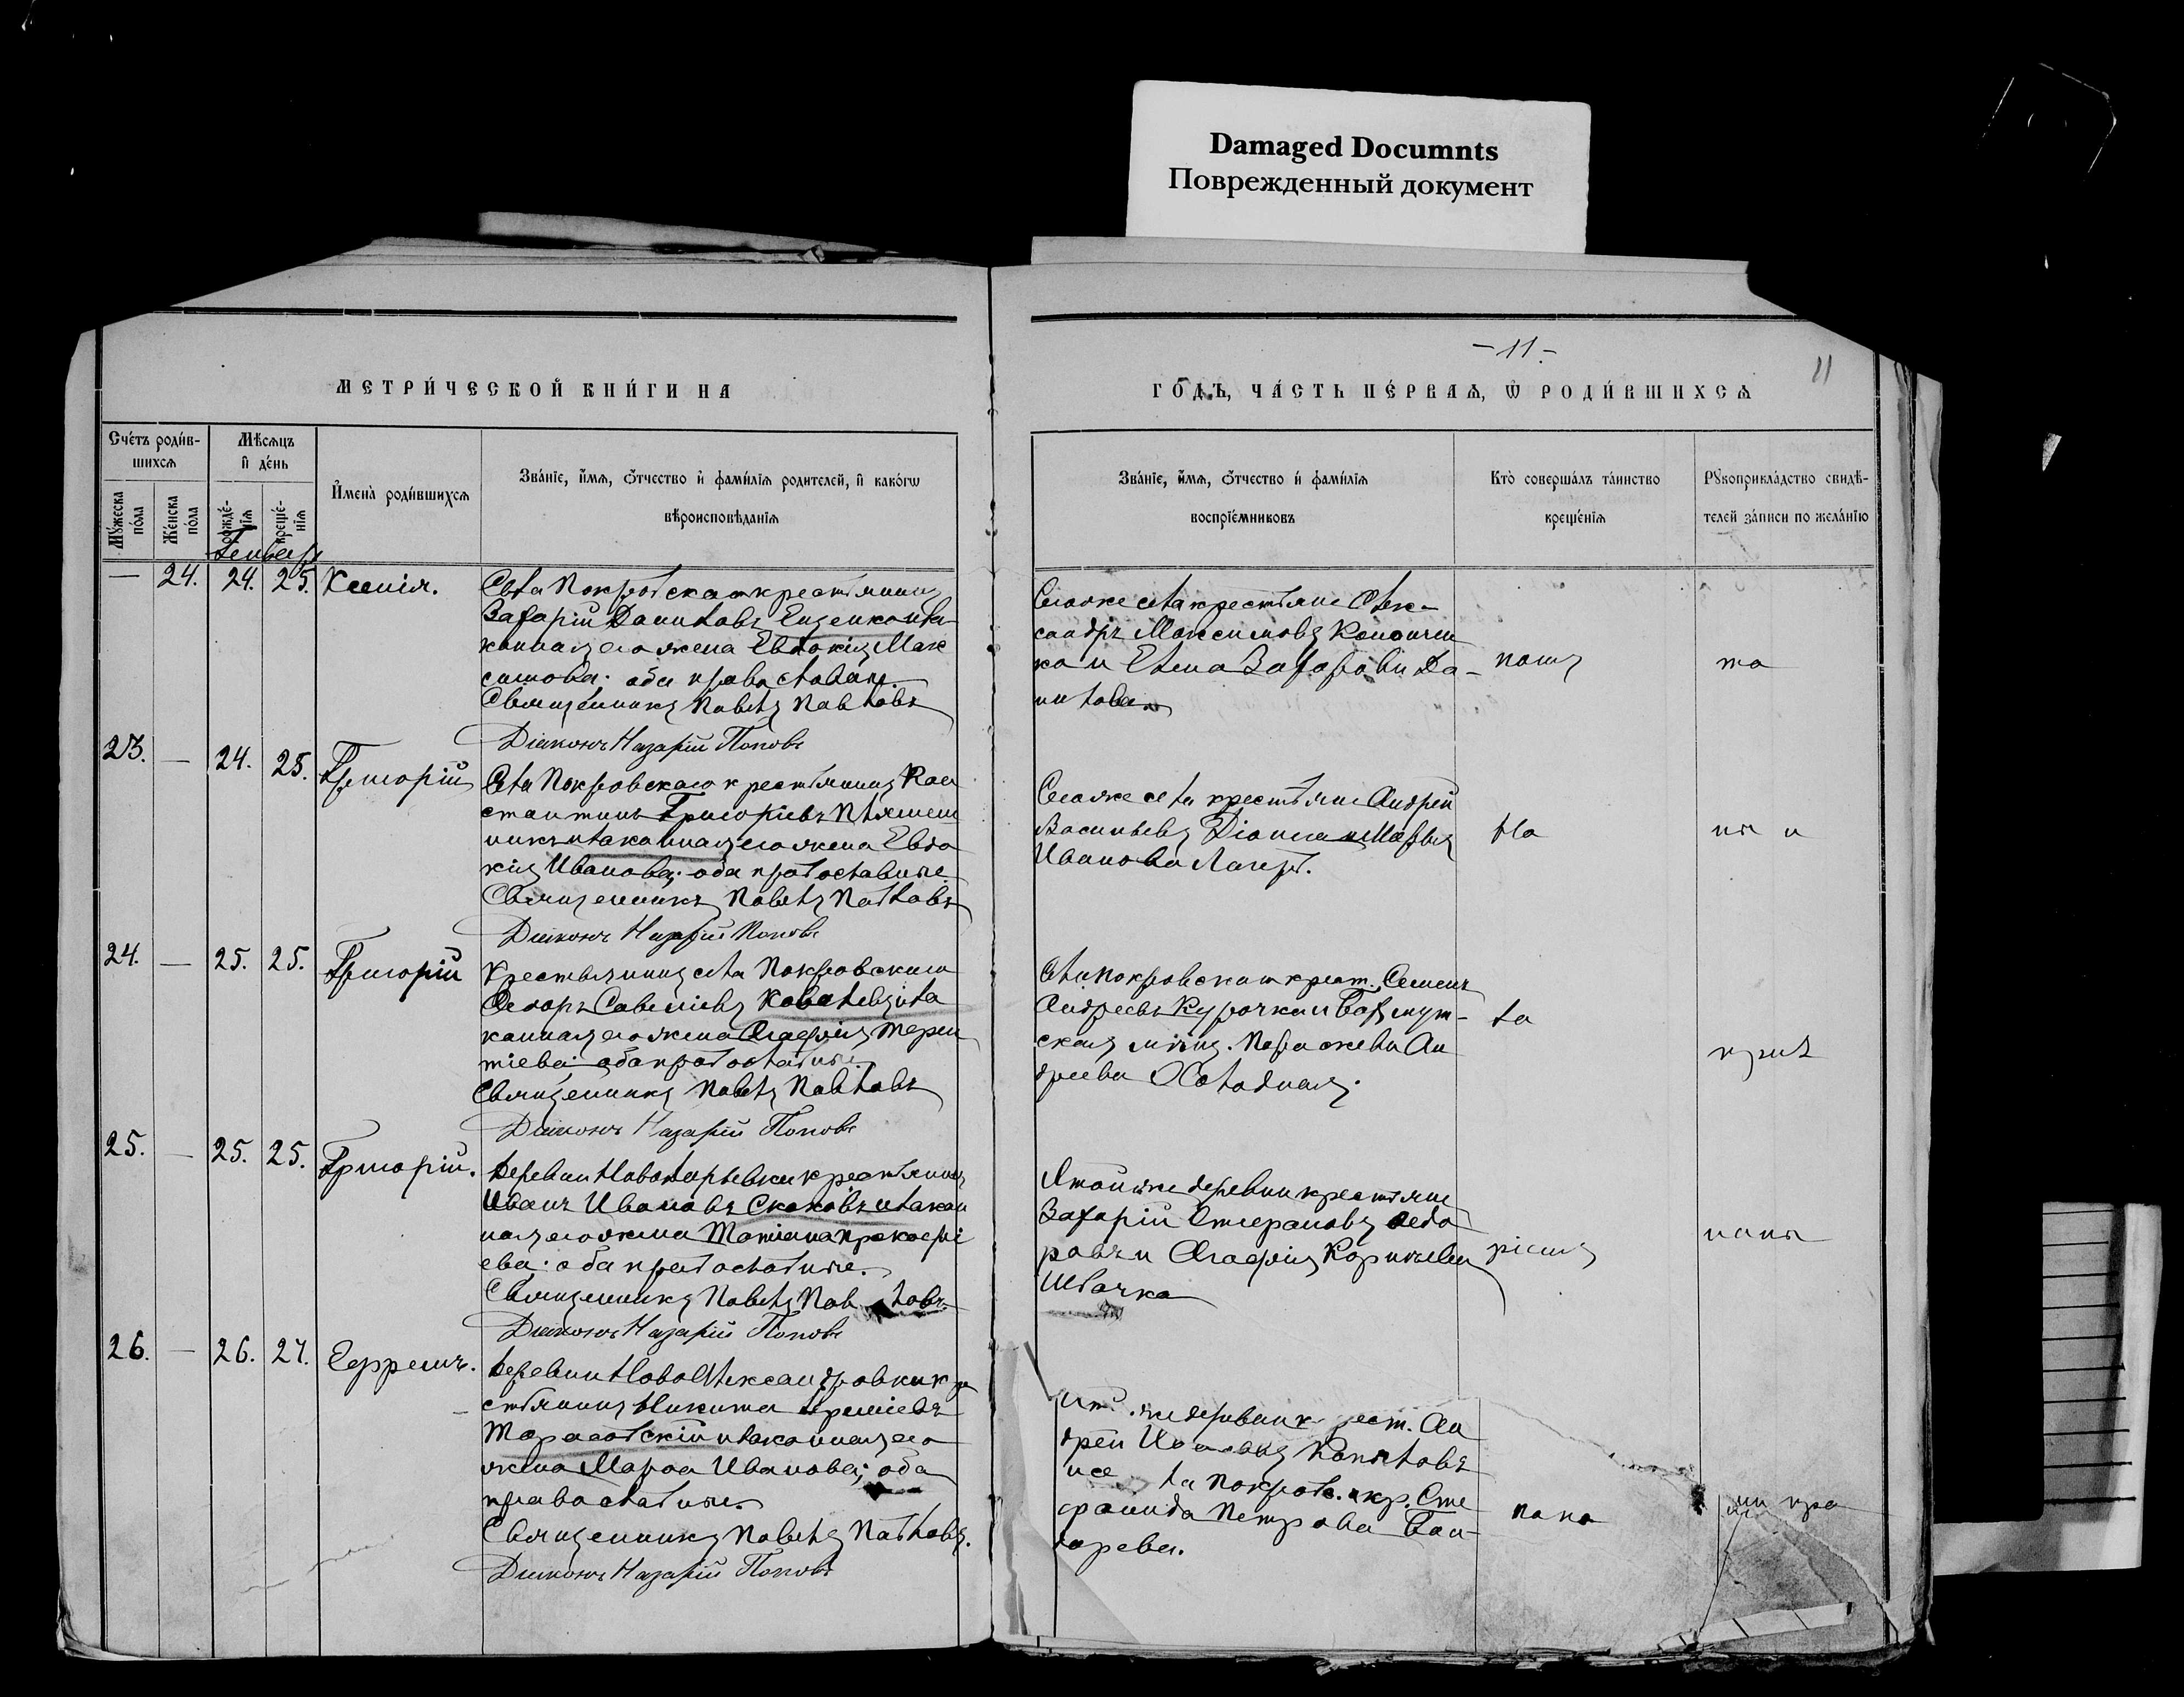 Damaged Documnts
Поврежденный документ
- 11. -
11
МЕТРИ́ЧЕСКОЙ КНИ́ГИ НА
ГО́ДЪ, ЧА́СТЬ ПЕ́РВАѦ, Ѡ РОДИ́ВШИХСѦ
Сче́тъ роди́в-
шихсѧ
Мѣсѧцъ
и҆ де́нь
Му́жеска
по́ла
Же́нска
по́ла
рожде́-
нїѧ
креще́-
нїѧ
И҆мена̀ роди́вшихсѧ
Зва́нїе, и҆́мѧ, ѻ҆́тчество и҆ фами́лїѧ родителей, и҆ како́гѡ
вѣроисповѣданїѧ
Зва́нїе, и҆́мѧ, ѻ҆́тчество и҆ фами́лїѧ
воспрїе́мниковъ
Кто̀ соверша́лъ та́инство
креще́нїѧ
Рꙋкоприкла́дство свидѣ́-
телей за́писи по жела́нїю
— 24. 24. 25. Ксенія.
Села Покровскаго крестьянинъ
Захарій Даниловъ Еценко и за-
конная его жена Евдокія Мак
симова: оба православн.
Священникъ Павелъ Павловъ
Діаконъ Назарій Поповъ
Сегоже села крестьяне Алек-
сандръ Максимовъ Кононен
ко и Елена Захарова Да-
нилова
23. — 24. 25. Григорій
Села Покровскаго крестьянинъ Кон
стантинъ Григорьевъ
и законная его жена Евдо
кія Иванова; оба православные.
Священникъ Павелъ Павловъ
Діаконъ Назарій Поповъ
Сегоже села крестьяне Андрей
Васильевъ и Марья
Иванова
24. — 25. 25. Григорій
Крестьянинъ села Покровскаго
Федоръ Савельевъ Ковалевъ и за
конная его жена Агафія Терен
тіева: оба православные.
Священникъ Павелъ Павловъ
Діаконъ Назарій Поповъ
Села Покровскаго крест. Семенъ
Андреевъ Курочка и Бахмут-
ская мѣщ. Параскева Ан
дреева Холодная.
25. — 25. 25. Григорій.
Деревни крестьянинъ
Иванъ Ивановъ Скоковъ и закон
ная его жена Татіана Прокофі
ева: оба православные.
Священникъ Павелъ Павловъ
Діаконъ Назарій Поповъ
Той же деревни крестьяне
Захарій Стефановъ Федо
ровъ и Агафія Корнилѣева
Швачка
26. — 26. 27. Ефремъ.
Деревни НовоАлександровки кре
стьянинъ Никита
Тарасовскій и законная его
жена Марфа Иванова; оба
православные.
Священникъ Павелъ Павловъ.
Діаконъ Назарій Поповъ
же деревни крест. Ан
дрей Ивановъ Копыловъ
и села Покровс. кр. Сте
фанида Петрова Бон-
дарева.